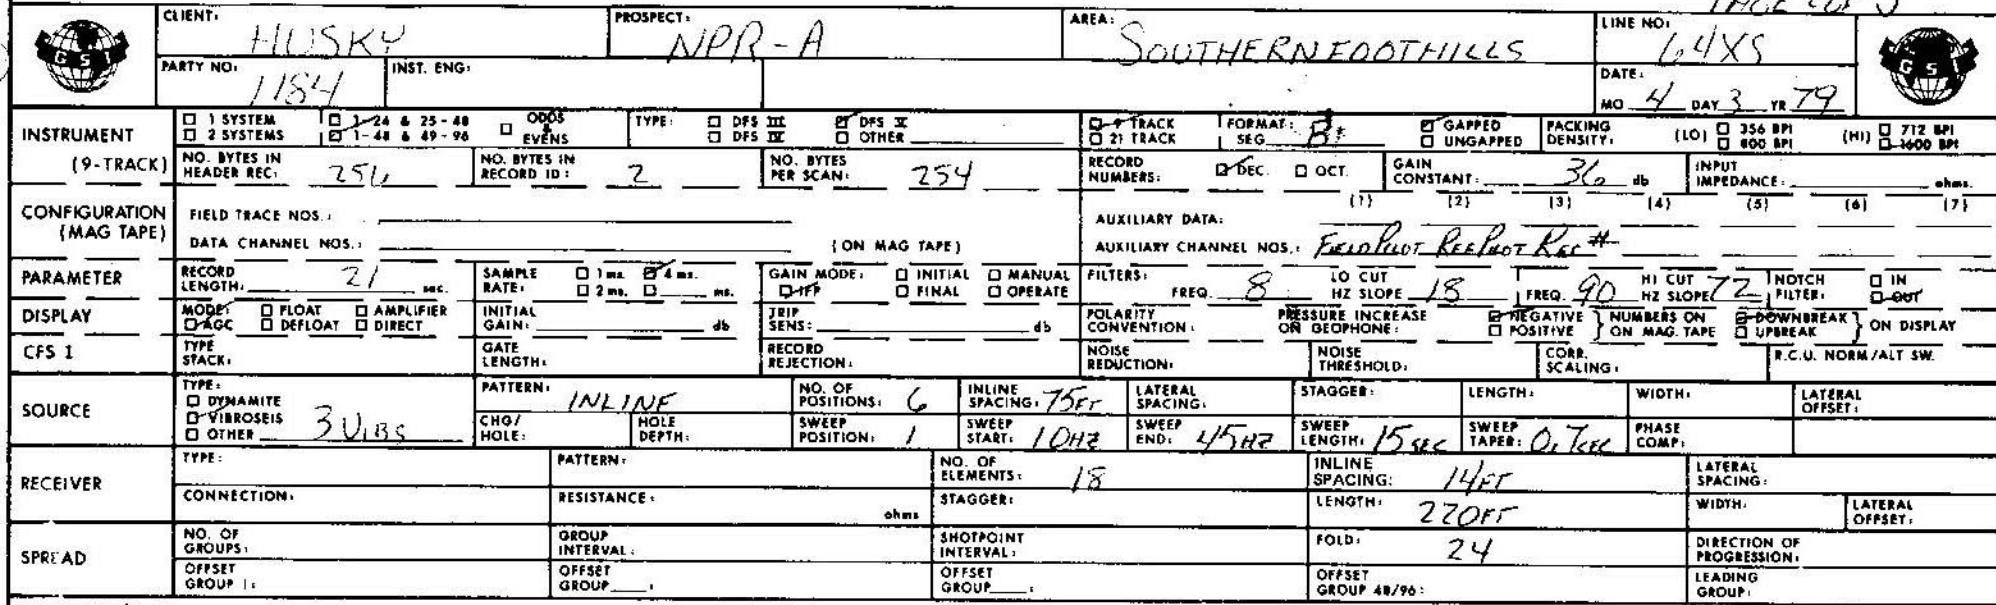 PAGE 2 OF 3
CLIENT: HUSKY PROSPECT: NPR-A AREA: SOUTHERN FOOTHILLS LINE NO: 64XS
GSI GSI
PARTY NO: 1184 INST. ENG: DATE:
MO 4 DAY 3 YR 79
INSTRUMENT (9-TRACK)
☐ 1 SYSTEM ☐ 1-24 & 25-48 ☐ ODDS & EVENS TYPE: ☐ DFS III ☑ DFS V ☑ 9 TRACK FORMAT: SEG B* ☑ GAPPED PACKING DENSITY: (LO) ☐ 356 BPI (HI) ☐ 712 BPI
☐ 2 SYSTEMS ☑ 1-48 & 49-96 ☐ DFS IV ☐ OTHER ☐ 21 TRACK ☐ UNGAPPED ☐ 800 BPI ☑ 1600 BPI
NO. BYTES IN HEADER REC: 256 NO. BYTES IN RECORD ID: 2 NO. BYTES PER SCAN: 254 RECORD NUMBERS: ☑ DEC. ☐ OCT. GAIN CONSTANT: 36 db INPUT IMPEDANCE: ohms.
CONFIGURATION (MAG TAPE)
FIELD TRACE NOS.: AUXILIARY DATA: (1) (2) (3) (4) (5) (6) (7)
DATA CHANNEL NOS.: (ON MAG TAPE) AUXILIARY CHANNEL NOS.: FIELD PILOT REF PILOT REC #
PARAMETER
RECORD LENGTH: 21 sec. SAMPLE RATE: ☐ 1 ms. ☑ 4 ms. ☐ 2 ms. ☐ ms. GAIN MODE: ☐ INITIAL ☐ MANUAL ☑ IFP ☐ FINAL ☐ OPERATE FILTERS: FREQ. 8 LO CUT HZ SLOPE 18 FREQ. 90 HI CUT HZ SLOPE 72 NOTCH FILTER: ☐ IN ☑ OUT
DISPLAY
MODE: ☐ FLOAT ☐ AMPLIFIER ☑ AGC ☐ DEFLOAT ☐ DIRECT INITIAL GAIN: db TRIP SENS: db POLARITY CONVENTION: PRESSURE INCREASE ON GEOPHONE: ☑ NEGATIVE ☐ POSITIVE } NUMBERS ON MAG. TAPE ☑ DOWNBREAK ☐ UPBREAK } ON DISPLAY
CFS I
TYPE STACK: GATE LENGTH: RECORD REJECTION: NOISE REDUCTION: NOISE THRESHOLD: CORR. SCALING: R.C.U. NORM/ALT SW.
SOURCE
TYPE: ☐ DYNAMITE ☑ VIBROSEIS ☐ OTHER 3 VIBS PATTERN: INLINE NO. OF POSITIONS: 6 INLINE SPACING: 75FT LATERAL SPACING: STAGGER: LENGTH: WIDTH: LATERAL OFFSET:
CHG/HOLE: HOLE DEPTH: SWEEP POSITION: 1 SWEEP START: 10HZ SWEEP END: 45HZ SWEEP LENGTH: 15 SEC SWEEP TAPER: 0.7SEC PHASE COMP:
RECEIVER
TYPE: PATTERN: NO. OF ELEMENTS: 18 INLINE SPACING: 14FT LATERAL SPACING:
CONNECTION: RESISTANCE: ohms STAGGER: LENGTH: 220FT WIDTH: LATERAL OFFSET:
SPREAD
NO. OF GROUPS: GROUP INTERVAL: SHOTPOINT INTERVAL: FOLD: 24 DIRECTION OF PROGRESSION:
OFFSET GROUP 1: OFFSET GROUP : OFFSET GROUP : OFFSET GROUP 48/96: LEADING GROUP: